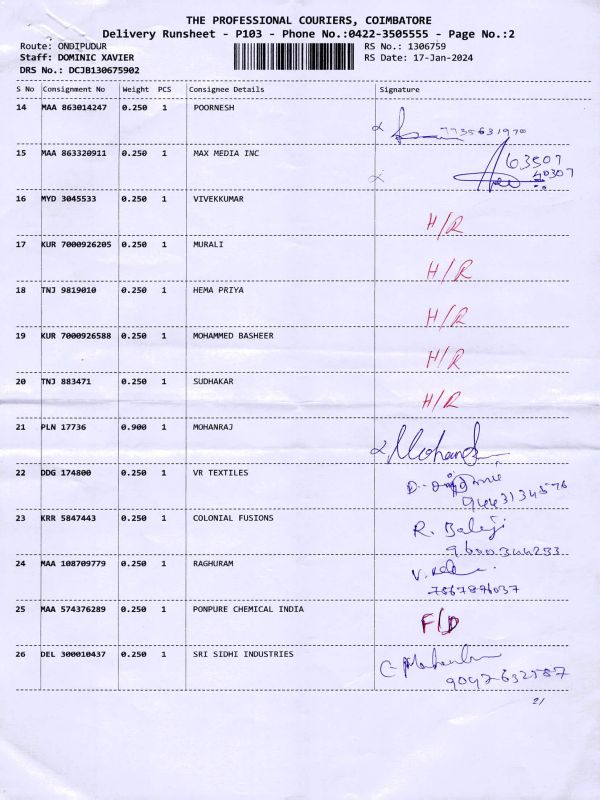 THE PROFESSIONAL COURIERS, COIMBATORE
Delivery Runsheet - P103 - Phone No.:0422-3505555 - Page No.:2
Route: ONDIPUDUR RS No.: 1306759
Staff: DOMINIC XAVIER RS Date: 17-Jan-2024
DRS No.: DCJB130675902
S No Consignment No Weight PCS Consignee Details Signature
14 MAA 863014247 0.250 1 POORNESH
7735631970
15 MAA 863320911 0.250 1 MAX MEDIA INC 63507
40307
16 MYD 3045533 0.250 1 VIVEKKUMAR
H/R
17 KUR 7000926205 0.250 1 MURALI
H/R
18 TNJ 9819010 0.250 1 HEMA PRIYA
H/R
19 KUR 7000926588 0.250 1 MOHAMMED BASHEER
H/R
20 TNJ 883471 0.250 1 SUDHAKAR
H/R
21 PLN 17736 0.900 1 MOHANRAJ
22 DDG 174800 0.250 1 VR TEXTILES
23 KRR 5847443 0.250 1 COLONIAL FUSIONS
R. Balaji
9600344233
24 MAA 108709779 0.250 1 RAGHURAM
7867896037
25 MAA 574376289 0.250 1 PONPURE CHEMICAL INDIA
F/D
26 DEL 300010437 0.250 1 SRI SIDHI INDUSTRIES
9047632587
2/